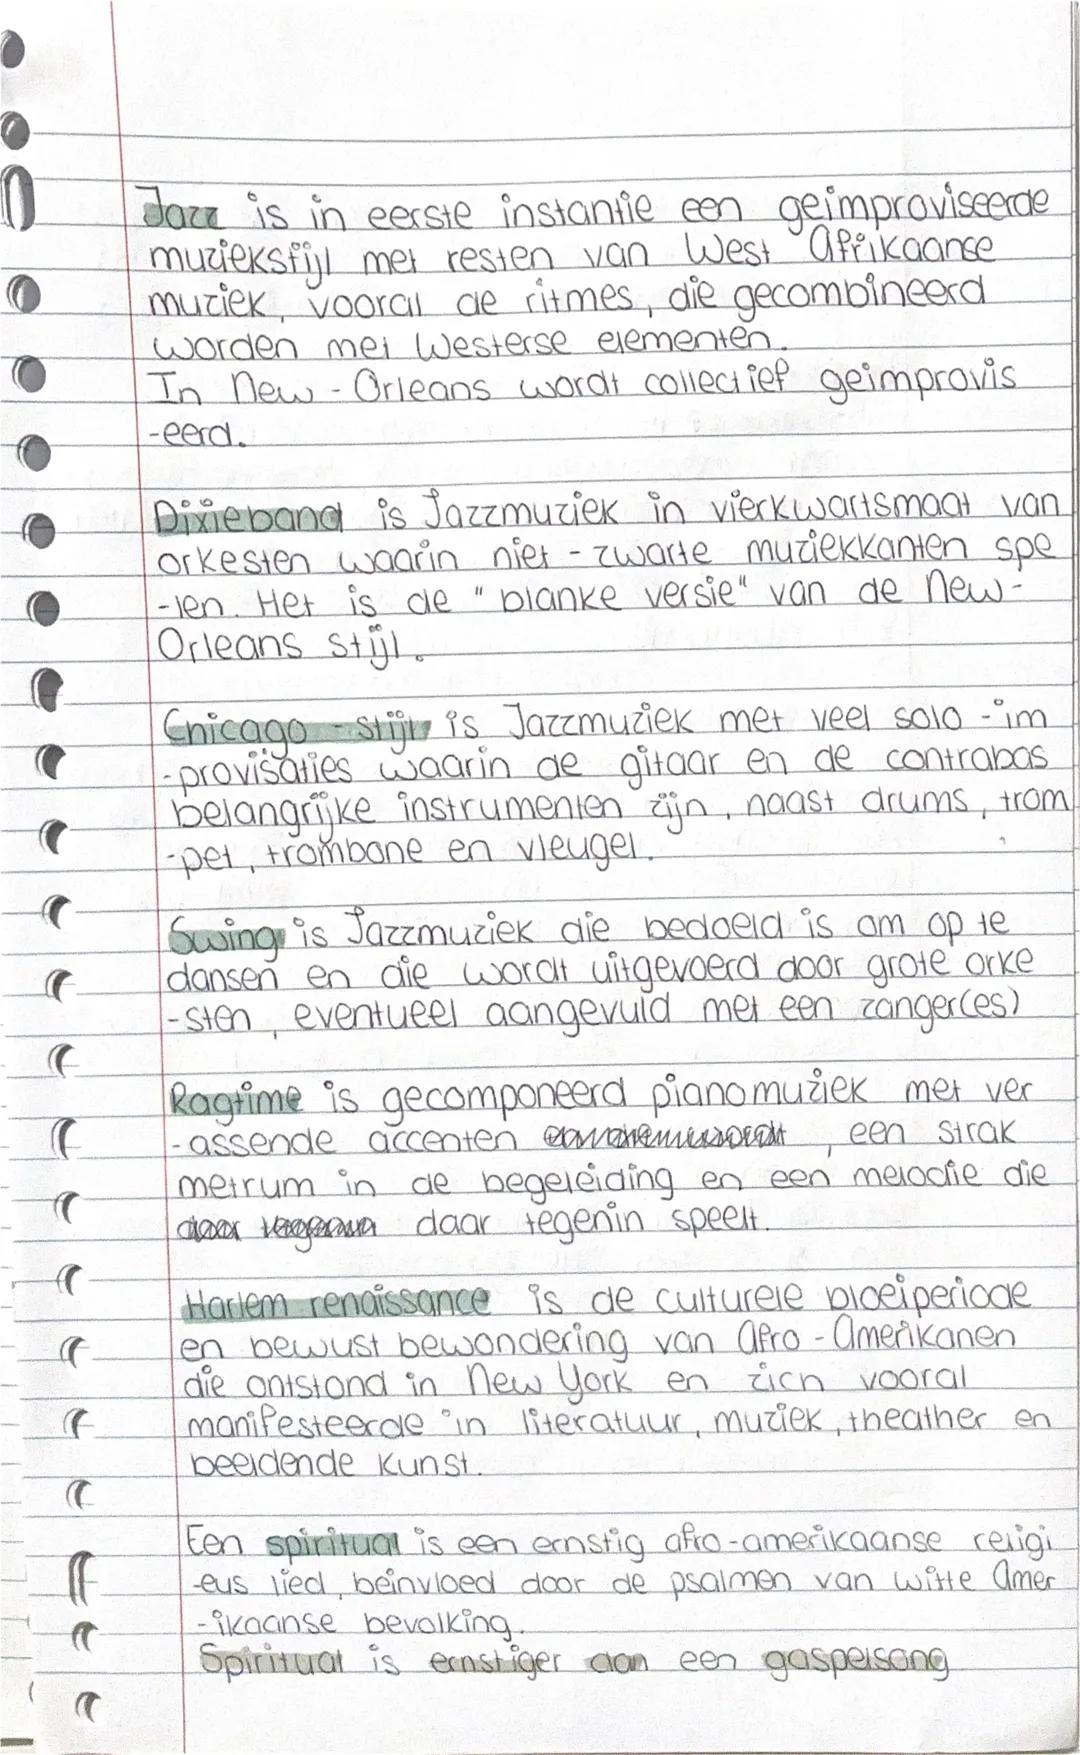 Jazz is in eerste instantie een geimproviseerde
muziekstijl met resten van West Afrikaanse
muziek, vooral de ritmes, die gecombineerd
worden met Westerse elementen.
In New-Orleans wordt collectief geimprovis
-eerd.
Dixieband is Jazzmuziek in vierkwartsmaat van
orkesten waarin niet-zwarte muziekkanten spe
-len. Het is de "blanke versie" van de New-
Orleans stijl.
Chicago-stijl is Jazzmuziek met veel solo-im
-provisaties waarin de gitaar en de contrabas
belangrijke instrumenten zijn, naast drums, trom
-pet, trombone en vleugel.
Swing is Jazzmuziek die bedoeld is om op te
dansen en die wordt uitgevoerd door grote orke
-sten, eventueel aangevuld met een zanger(es)
Ragtime is gecomponeerd pianomuziek met ver
-assende accenten, een strak
metrum in de begeleiding en een melodie die
daar tegenin speelt.
Harlem renaissance is de culturele bloeiperiode
en bewust bewondering van Afro-Amerikanen
die ontstond in New York en zich vooral
manifesteerde in literatuur, muziek, theather en
beeldende kunst.
Een spiritual is een ernstig afro-amerikaanse religi
-eus lied, beinvloed door de psalmen van witte Amer
-ikaanse bevolking.
Spiritual is ernstiger dan een gospelsong